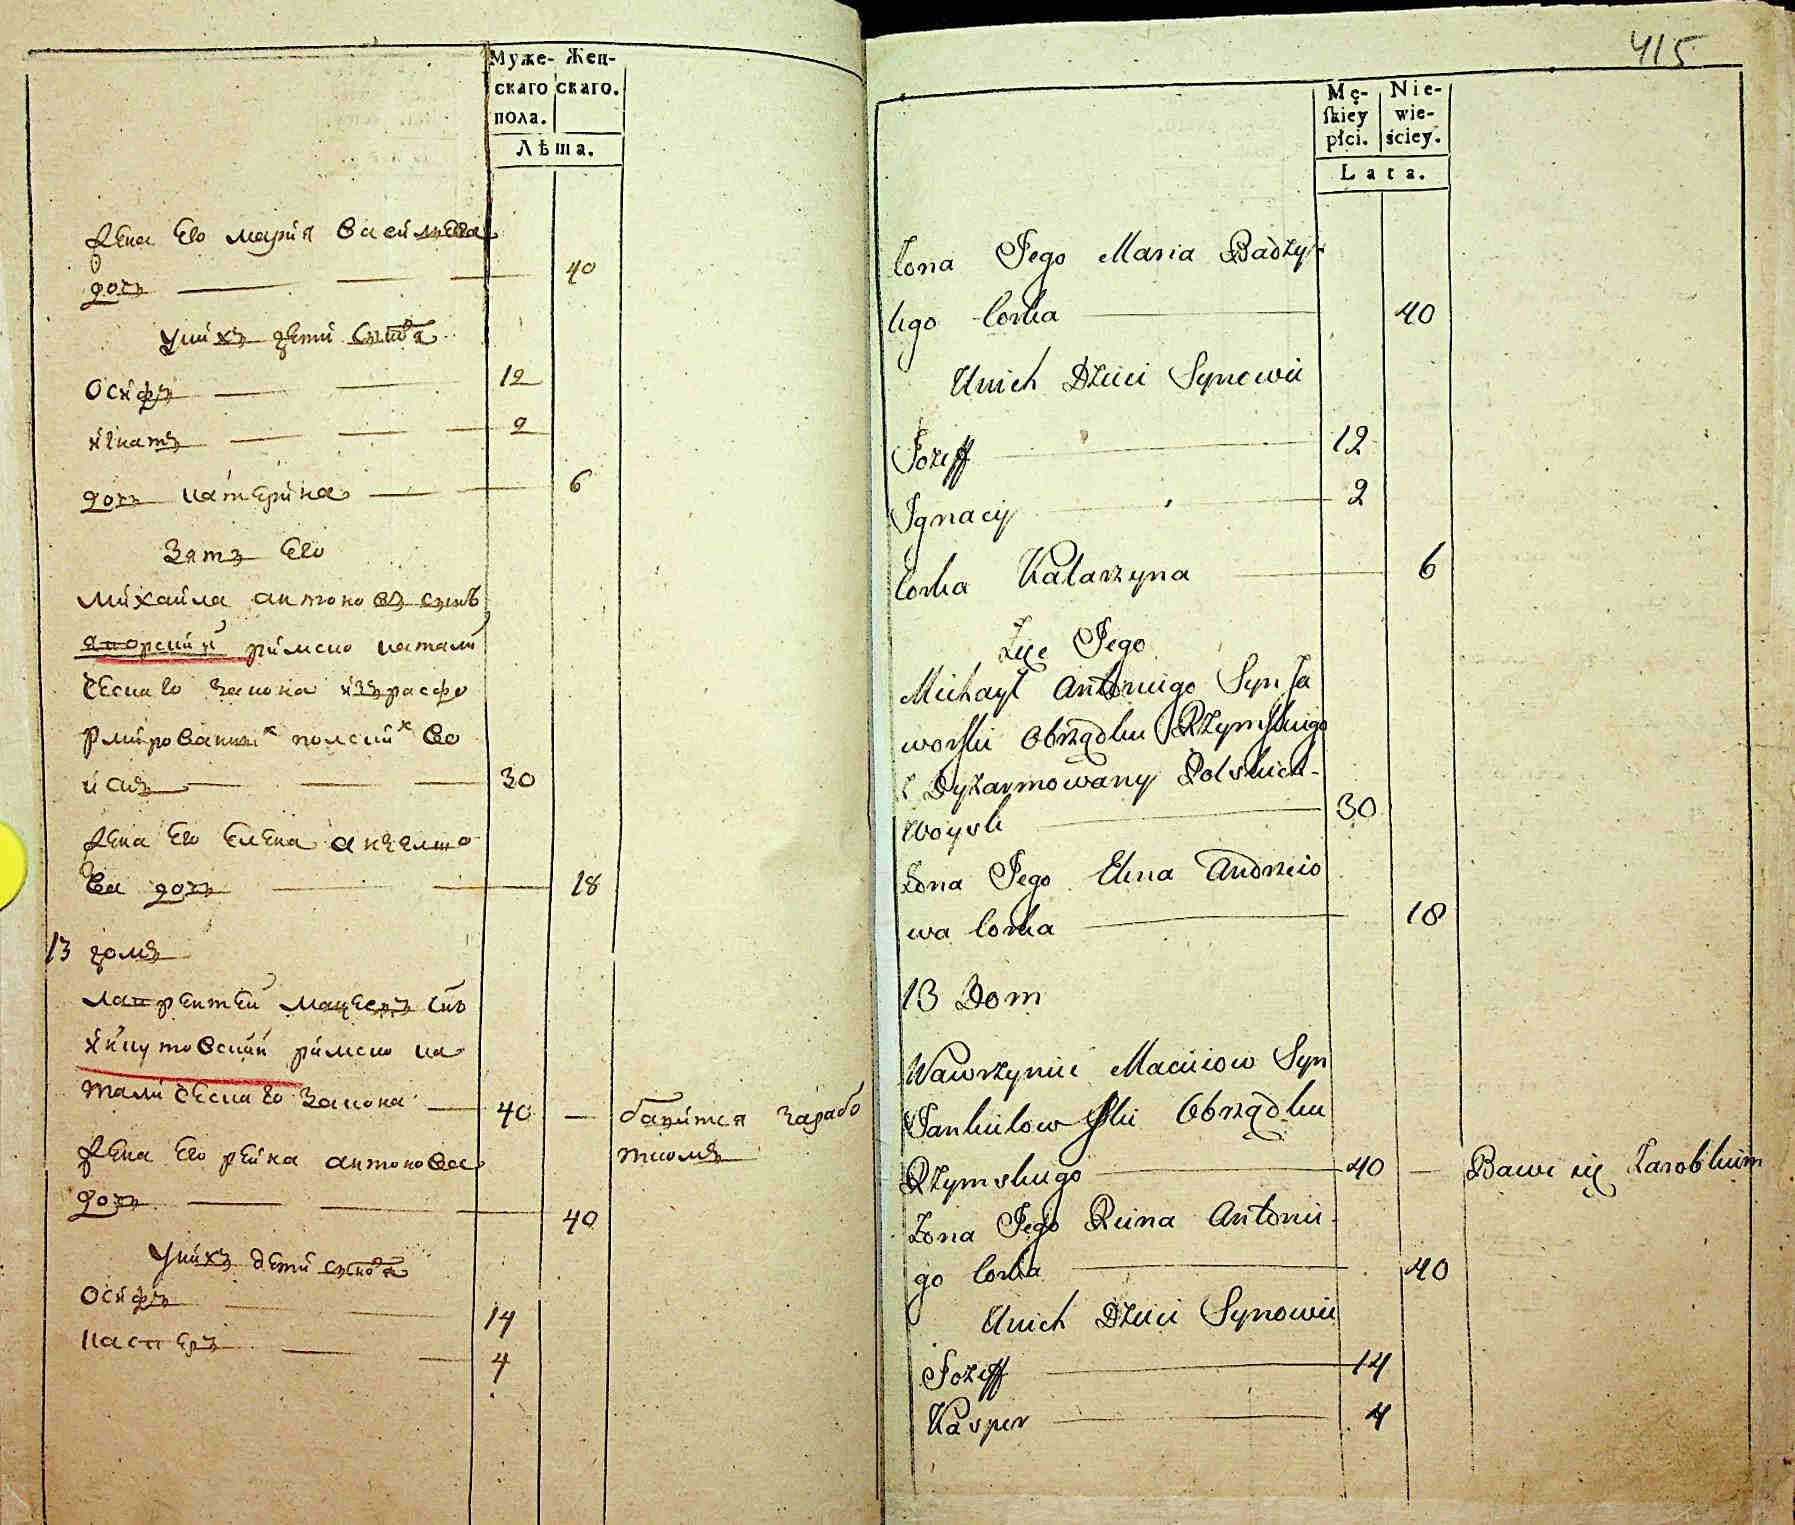 Муже- Жен-
скаго скаго.
пола.
Лѣта.
жена Его мария Васильева
дочъ 40
Унихъ дети сынов̾я
Осифъ 12
игнатъ 2
дочъ катерина 6
Зятъ Его
михаила антоновъ сынъ
яворский римско катали
ческаго закона изърасфо
рмированых полских во
искъ 30
жена Его Елена анъдреѣ
ва дочъ 18
13 домъ
лаврентеи мацеевъ снъ
янкутовский римско ка
талическаго закона 40 — бавится зарабо
ткомъ
жена Его реина антонова
дочъ 40
Унихъ дети сынов̾я
Осифъ 14
касперъ 4
415
Mę- Nie-
ſkiey wie-
płci. ściey.
Lata.
Żona Jego Maria Badzy
liego Corka 40
Unich Dzieci Synowie
Jozeff 12
Ignacy 2
Corka Katarzyna 6
Zięć Jego
Michaył Antoniego Syn Ja
worſki Obrządku Rzymſkiego
z Dyzarmowany Polskich
Woysk 30
Żona Jego Elena Andreio
wa Corka 18
13 Dom
Wawrzyniec Macieiow Syn
Jankulowſki Obrządku
Rzymskiego 40 — Bawi się Zarobkiem
Żona Jego Reina Antonie
go Corka 40
Unich Dzieci Synowie
Jozeff 14
Kasper 4